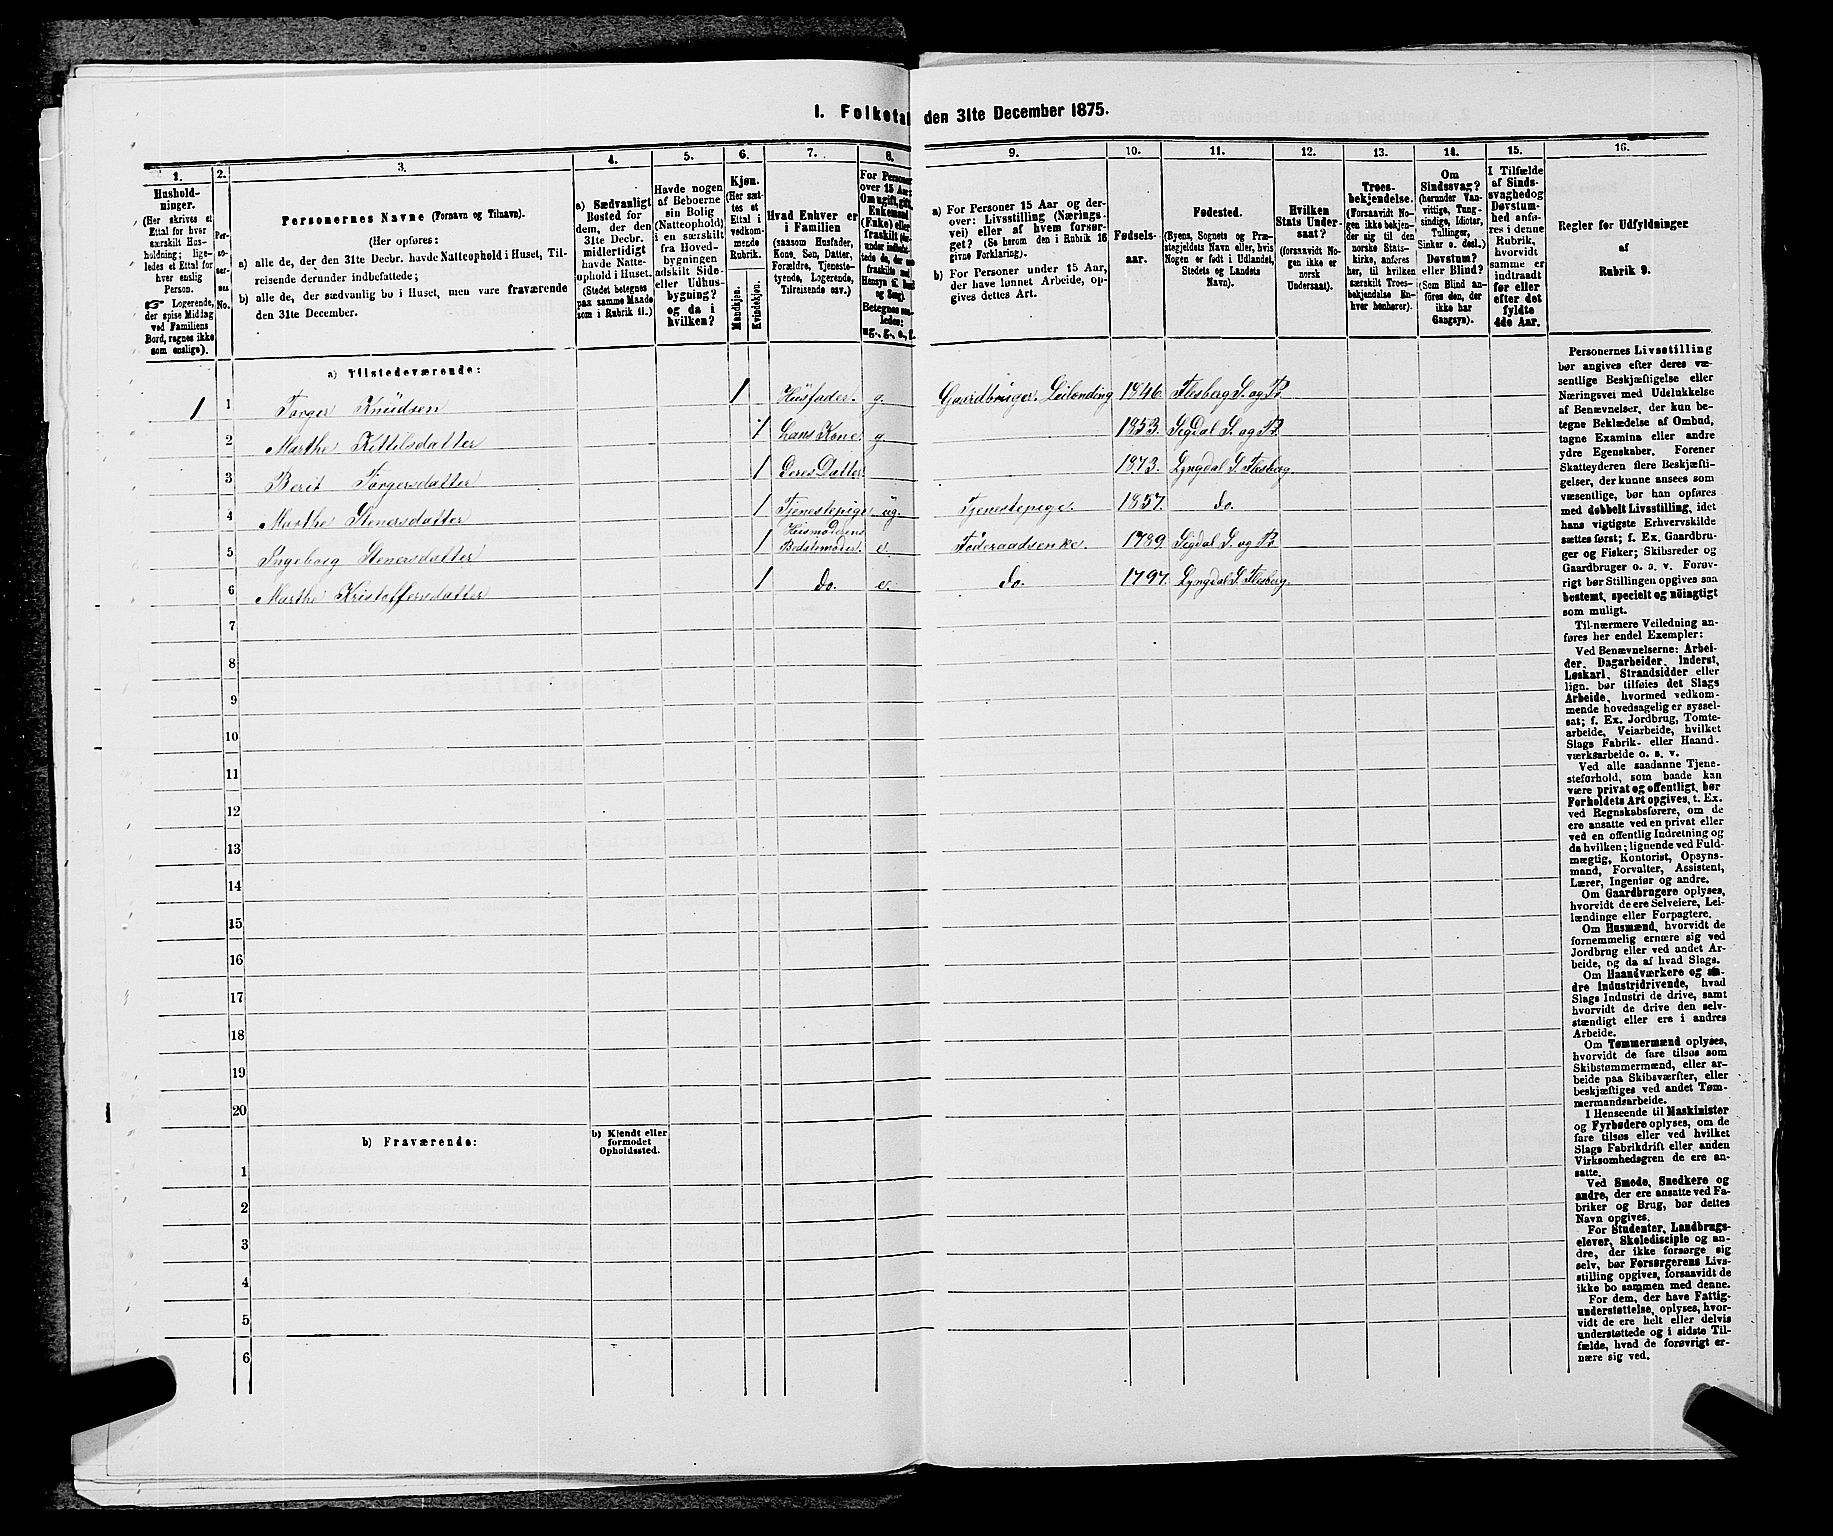 I. Folketal den 31te December 1875.
1.
Hushold-
ninger.
(Her skrives et
Ettal for hver
særskilt Hus-
holdning; lige-
ledes et Ettal for
hver enslig
Person.
☞ Logerende,
der spise Middag
ved Familiens
Bord, regnes ikke
som enslige).
2.
Per-
so-
ner-
nes
No.
3.
Personernes Navne (Fornavn og Tilnavn).
(Her opføres:
a) alle de, der den 31te Decbr. havde Natteophold i Huset, Til-
reisende derunder indbefattede;
b) alle de, der sædvanlig bo i Huset, men vare fraværende
den 31te December.
4.
a) Sædvanligt
Bosted for
dem, der den
31te Decbr.
midlertidigt
havde Natte-
ophold i Huset.
(Stedet betegnes
paa samme Maade
som i Rubrik 11.)
5.
Havde nogen
af Beboerne
sin Bolig
(Natteophold)
i en særskilt
fra Hoved-
bygningen
adskilt Side-
eller Udhus-
bygning?
og da i
hvilken?
6.
Kjøn.
(Her sæt-
tes et
Ettal i
vedkom-
mende
Rubrik.
Mandkjøn.
Kvindekjøn.
7.
Hvad Enhver er
i Familien
(saasom Husfader,
Kone, Søn, Datter,
Forældre, Tjeneste-
tyende, Logerende,
Tilreisende osv.)
8.
For Personer
over 15 Aar:
Om ugift, gift,
Enkemand
(Enke) eller
fraskilt
Betegnes saa-
ledes:
ug., g., e., f.
9.
a) For Personer 15 Aar og der-
over: Livsstilling (Nærings-
vei) eller af hvem forsør-
get? (Se herom den i Rubrik 16
givne Forklaring).
b) For Personer under 15 Aar,
der have lønnet Arbeide, op-
gives dettes Art.
10.
Fødsels-
aar.
11.
Fødested.
(Byens, Sognets og Præ-
stegjeldets Navn eller, hvis
Nogen er født i Udlandet,
Stedets og Landets
Navn).
12.
Hvilken
Stats Under-
saat?
(forsaavidt No-
gen ikke er
norsk
Undersaat).
13.
Troes-
bekjendelse.
(Forsaavidt No-
gen ikke bekjen-
der sig til den
norske Stats-
kirke, anføres
her, til hvilken
særskilt Troes-
bekjendelse En-
hver henhører).
14.
Om
Sindssvag?
(herunder Van-
vittige, Tung-
sindige, Idioter,
Tullinger,
Sinker o. desl.)
Døvstum?
eller Blind?
(Som Blind an-
føres den, der
ikke har
Gangsyn).
15.
I Tilfælde
af Sinds-
svaghed og
Døvstum-
hed anfø-
res i denne
Rubrik,
hvorvidt
samme er
indtraadt
før eller
efter det
fyldte
4de Aar.
16.
Regler for Udfyldninger
af
Rubrik 9.
a) Tilstedeværende:
1 1 Torger Knudsen 1 Husfader. g. Gaardbruger. Leilending 1846. Flesberg S. og P.
2 Marthe Kittilsdatter 1 Hans Kone. g. 1853. Sigdal S. og P.
3 Berit Torgersdatter 1 Deres Datter 1873. Lyngdal S. Flesberg.
4 Marthe Stenersdatter 1 Tjenestepige ug. Tjenestepige. 1857. do.
5 Ingeborg Stenersdatter 1 Husmoderens Bedstemoder. e. Føderaadsenke. 1789. Sigdal S. og P.
6 Marthe Kristoffersdatter 1 do. e. do. 1797. Lyngdal S. Flesberg.
7
8
9
10
11
12
13
14
15
16
17
18
19
20
b) Fraværende:
b) Kjendt eller
formodet
Opholdssted.
1
2
3
4
5
6
Personernes Livsstilling
bør angives efter deres væ-
sentlige Beskjæftigelse eller
Næringsvei med Udelukkelse
af Benævnelser, der kun be-
tegne Beklædelse af Ombud,
tagne Examina eller andre
ydre Egenskaber. Forener
Skatteyderen flere Beskjæfti-
gelser, der kunne ansees som
væsentlige, bør han opføres
med dobbelt Livsstilling, idet
hans vigtigste Erhvervskilde
sættes først; f. Ex. Gaardbru-
ger og Fisker; Skibsreder og
Gaardbruger o. s. v. Forøv-
rigt bør Stillingen opgives saa
bestemt, specielt og nøiagtigt
som muligt.
Til nærmere Veiledning an-
føres her endel Exempler:
Ved Benævnelserne: Arbei-
der, Dagarbeider, Inderst,
Løskarl, Strandsidder eller
lign. bør tilføies det Slags
Arbeide, hvormed vedkom-
mende hovedsagelig er syssel-
sat; f. Ex. Jordbrug, Tomte-
arbeide, Veiarbeide, hvilket
Slags Fabrik- eller Haand-
værksarbeide o. s. v.
Ved alle saadanne Tjene-
steforhold, som baade kan
være privat og offentligt, bør
Forholdets Art opgives, t. Ex.
ved Regnskabsførere, om de
ere ansatte ved en privat eller
ved en offentlig Indretning og
da hvilken; lignende ved Fuld-
mægtig, Kontorist, Opsyns-
mand, Forvalter, Assistent,
Lærer, Ingeniør og andre.
Om Gaardbrugere oplyses,
hvorvidt de ere Selveiere, Lei-
lændinge eller Forpagtere.
Om Husmænd, hvorvidt de
fornemmelig ernære sig ved
Jordbrug eller ved andet Ar-
beide, og da af hvad Slags.
Om Haandværkere og an-
dre Industridrivende, hvad
Slags Industri de drive, samt
hvorvidt de drive den selv-
stændigt eller ere i andres
Arbeide.
Om Tømmermænd oplyses,
hvorvidt de fare tilsøs som
Skibstømmermænd, eller ar-
beide paa Skibsværfter, eller
beskjæftiges ved andet Tøm-
mermandsarbeide.
I Henseende til Maskinister
og Fyrbødere oplyses, om de
fare tilsøs eller ved hvilket
Slags Fabrikdrift eller anden
Virksomhedsgren de ere an-
satte.
Ved Smede, Snedkere og
andre, der ere ansatte ved Fa-
briker og Brug, bør dettes
Navn opgives.
For Studenter, Landbrugs-
elever, Skoledisciple og an-
dre, der ikke forsørge sig
selv, bør Forsørgerens Livs-
stilling opgives, forsaavidt de
ikke bo sammen med denne.
For dem, der have Fattig-
understøttelse, oplyses, hvor-
vidt de ere helt eller delvis
understøttede og i sidste Til-
fælde, hvad de forøvrigt er-
nære sig ved.